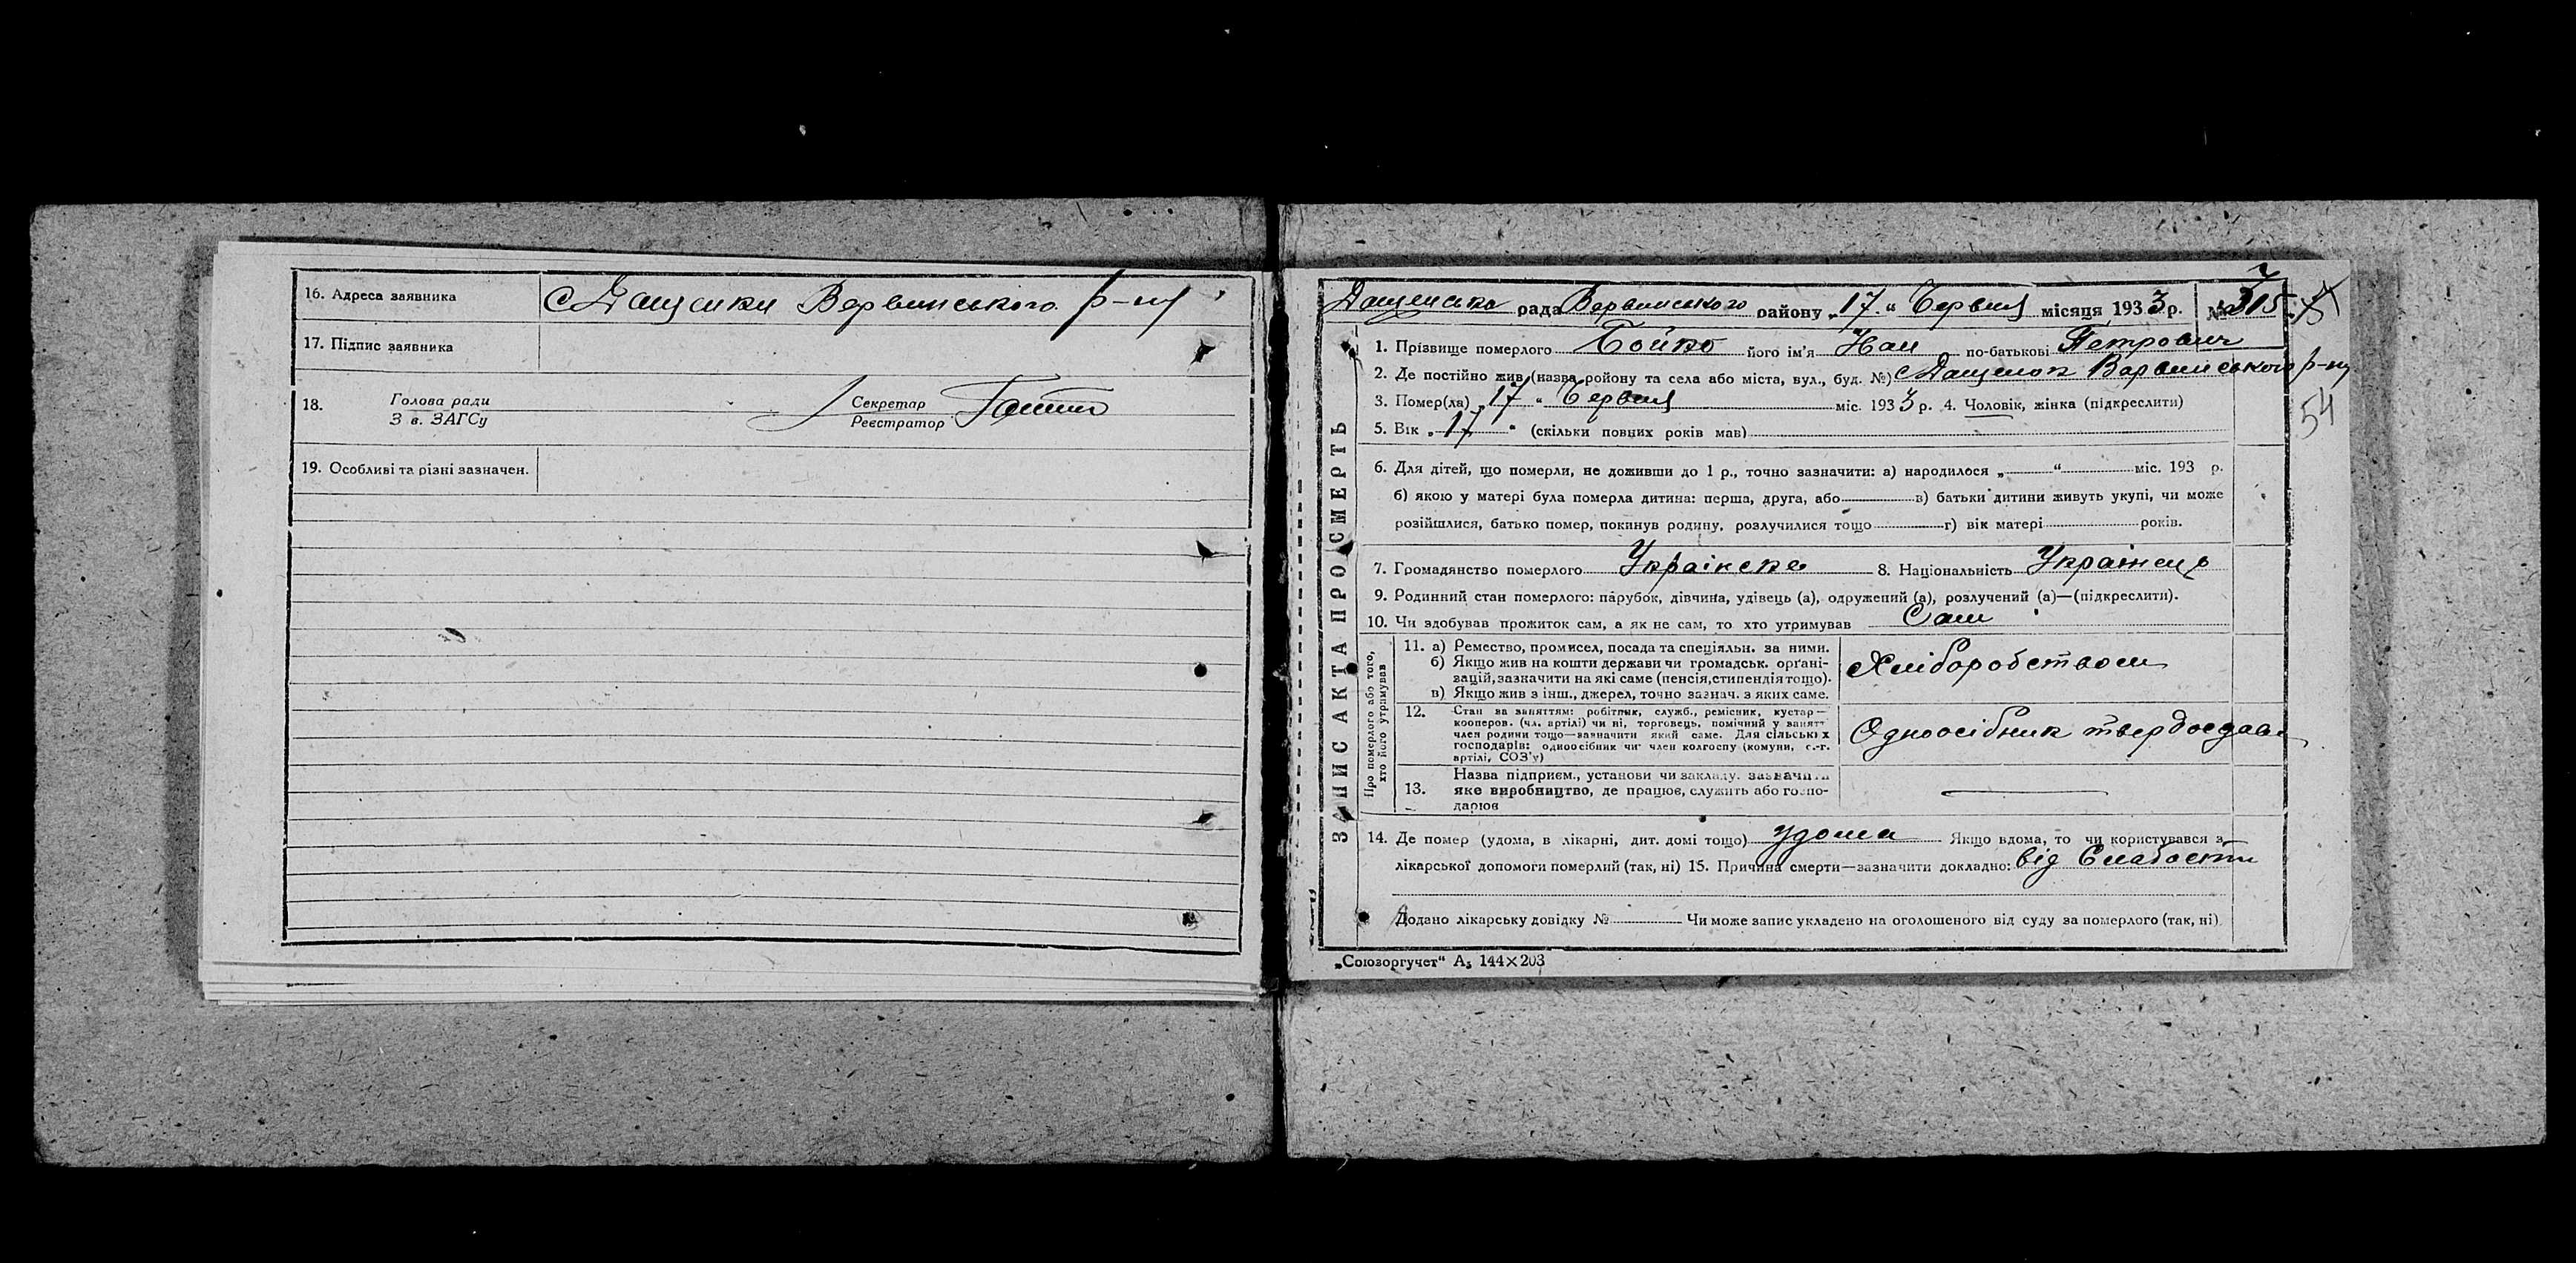 16. Адреса заявника с Дащенки Варвинського р-ну
17. Підпис заявника
18. Голова ради
З в. ЗАГСу
Секретар
Реєстратор
19. Особливі та різні зазначен.
Дащенська рада Варвинського району „17" Червня місяця 1933 р. №
1. Прізвище померлого Бойко його ім'я Іван по-батькові Петрович
2. Де постійно жив (назва ройону та села або міста, вул., буд. №) с Дащенок Варвинського р-ну
3. Помер(ла) „17" Червня міс. 1933 р. 4. Чоловік, жінка (підкреслити)
54
5. Вік „17" (скільки повних років мав)
6. Для дітей, що померли, не доживши до 1 р., точно зазначити: а) народилося „ " міс. 193 р.
б) якою у матері була померла дитина: перша, друга, або в) батьки дитини живуть укупі, чи може
розійшлися, батько помер, покинув родину, розлучилися тощо г) вік матері років.
7. Громадянство померлого 8. Національність Українець
9. Родинний стан померлого: парубок, дівчина, удівець (а), одружений (а), розлучений (а)—(підкреслити).
10. Чи здобував прожиток сам, а як не сам, то хто утримував Сам
ЗАПИС АКТА ПРО СМЕРТЬ
Про померлого або того, хто його утримував
11. а) Ремество, промисел, посада та спеціяльн. за ними.
б) Якщо жив на кошти держави чи громадськ. орґані-
зацій, зазначити на які саме (пенсія, стипендія тощо).
в) Якщо жив з інш., джерел, точно зазнач. з яких саме.
Хліборобством
12. Стан за заняттям: робітник, служб., ремісник, кустар—
кооперов. (чл. артілі) чи ні, торговець, помічний у занятт
член родини тощо—зазначити який саме. Для сільських
господарів: одноосібник чи член колгоспу (комуни, с.-г.
артілі, СОЗ'у)
Одноосібник
13. Назва підприєм., установи чи закладу. зазначити
яке виробництво, де працює, служить або госпо-
дарює
14. Де помер (удома, в лікарні, дит. домі тощо) удома Якщо вдома, то чи користувався з
лікарської допомоги померлий (так, ні) 15. Причина смерти—зазначити докладно: від Слабости
Додано лікарську довідку № Чи може запис укладено на оголошеного від суду за померлого (так, ні)
„Союзоргучет" А₅ 144×203